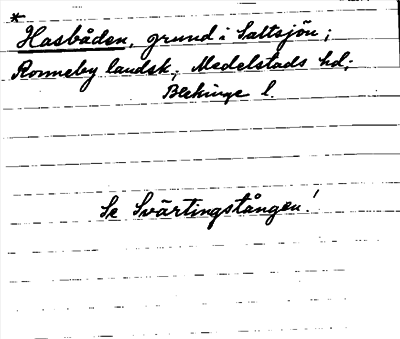 *
Hasbåden, grund i Saltsjön;
Ronneby landsk.; Medelstads hd;
Blekinge l.
Se Svärtingstången!